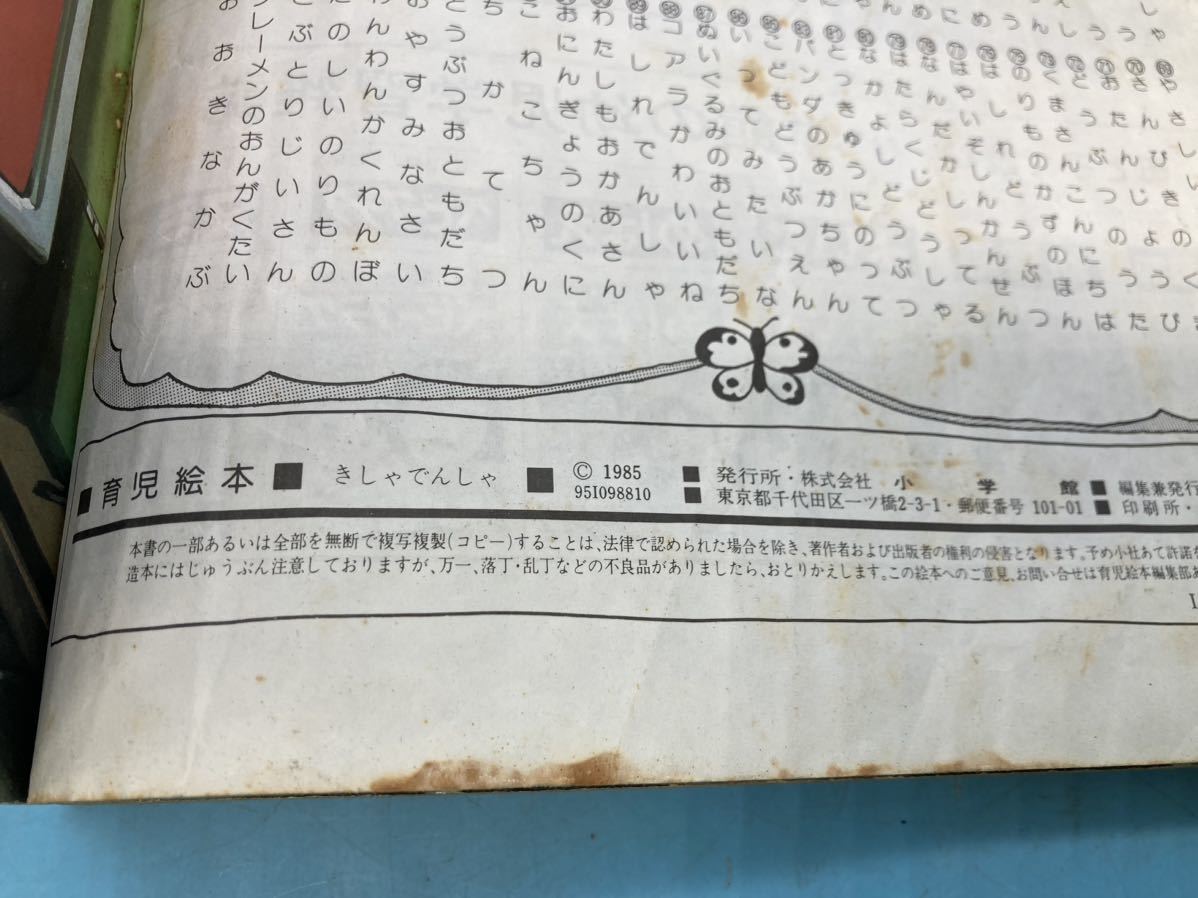 おたんじょうび
どうぶつのうた
くまさんこんにちは
のりものかずのほん
はしれどうぶつ
はやいぞしんかんせん
なんだかしってる
はたらくじどうしゃ
なかよしどうぶつ
とっきゅうにのって
パンダのあかちゃん
こどもどうぶつえん
いってみたいな
ぬいぐるみのおともだち
コアラかわいいね
はしれでんしゃ
わたしもおかあさん
おにんぎょうのくに
こねこちゃん
ちかてつ
どうぶつおともだち
おやすみなさい
わんわんかくれんぼ
たのしいのりもの
こぶとりじいさん
ブレーメンのおんがくたい
おおきなかぶ
■育児絵本■ きしゃでんしゃ ■ © 1985 ■ 発行所・株式会社 小学館 ■ 編集兼発行
95I098810 ■ 東京都千代田区一ツ橋2-3-1・郵便番号 101-01 ■ 印刷所・
本書の一部あるいは全部を無断で複写複製(コピー)することは、法律で認められた場合を除き、著作者および出版者の権利の侵害となります。予め小社あて許諾を
造本にはじゅうぶん注意しておりますが、万一、落丁・乱丁などの不良品がありましたら、おとりかえします。この絵本へのご意見、お問い合せは育児絵本編集部あ